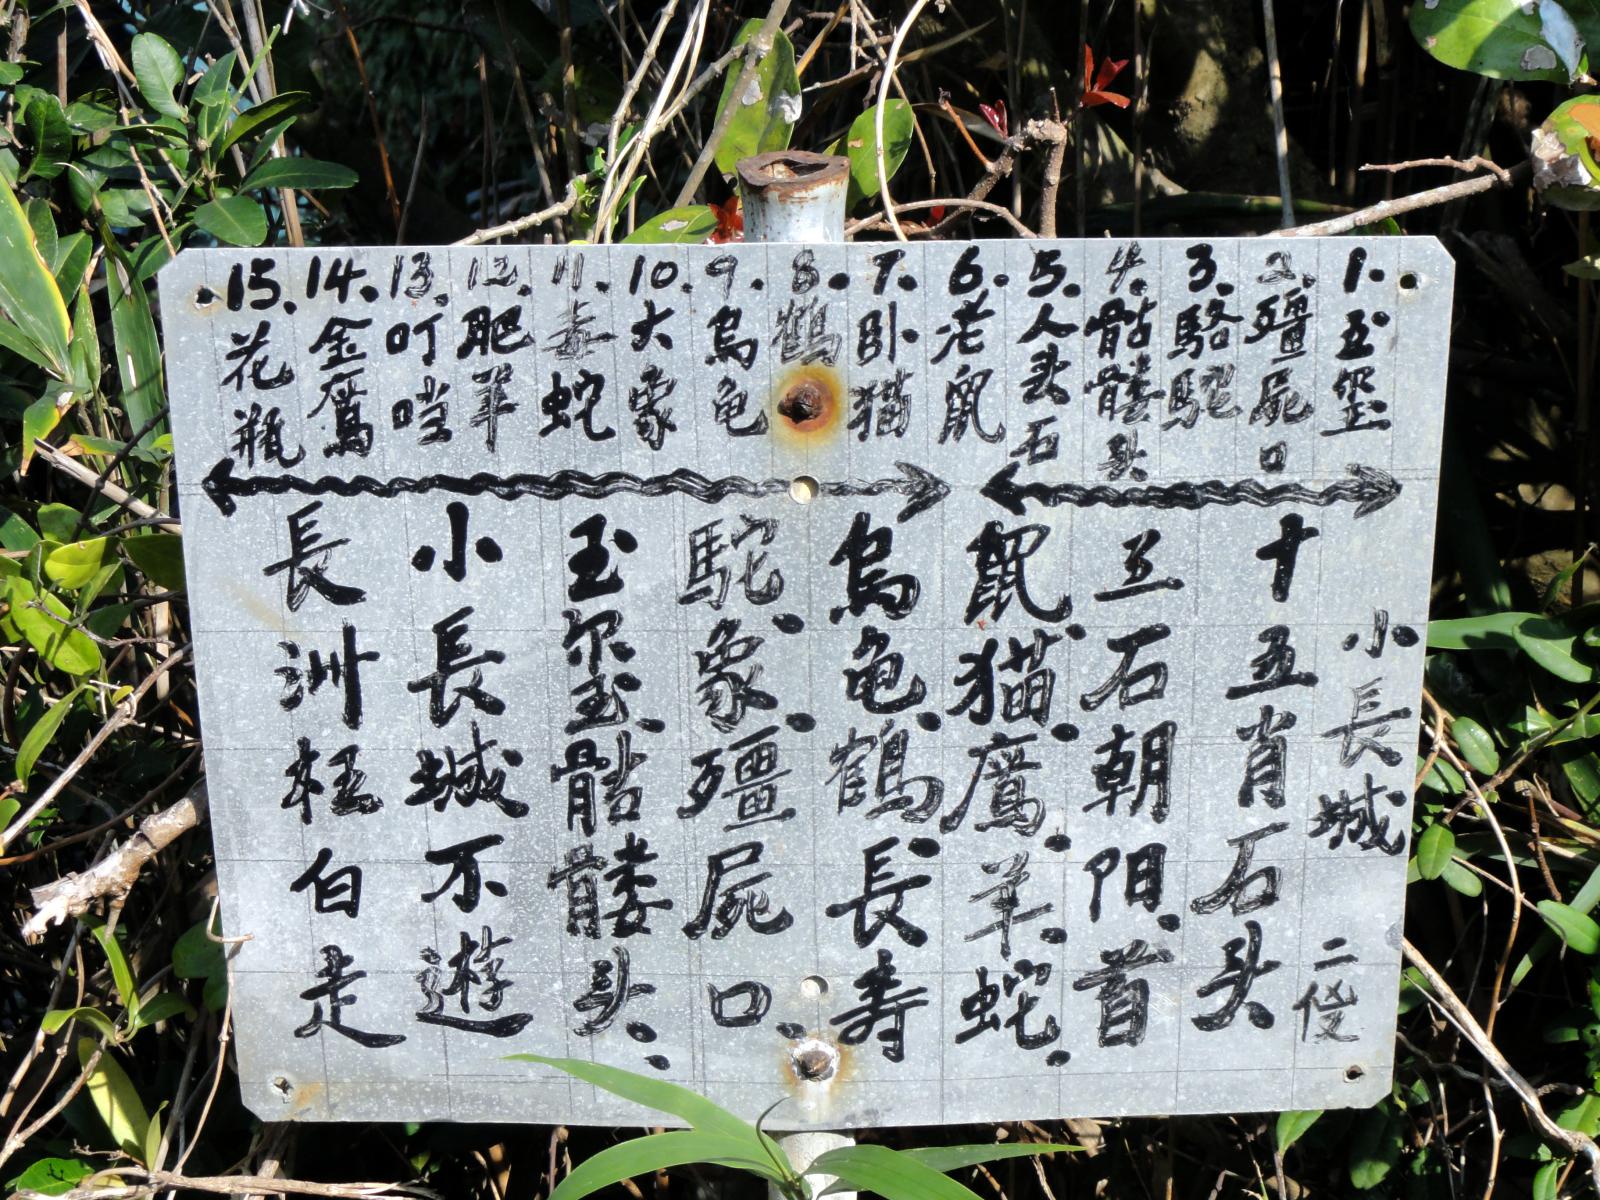 1. 玉玺
2. 殭屍口
3. 駱駝
4. 骷髏头
5. 人头石
6. 老鼠
7. 卧猫
8. 鶴
9. 烏龟
10. 大象
11. 毒蛇
12. 肥羊
13. 叮噹
14. 金鷹
15. 花瓶
小長城
十五肖石头
石朝阳.首
鼠.猫.鷹.羊.蛇.
烏龟.鶴.長寿
駝.象.殭屍口.
玉玺.骷髏头.
小長城不遊
長洲枉白走